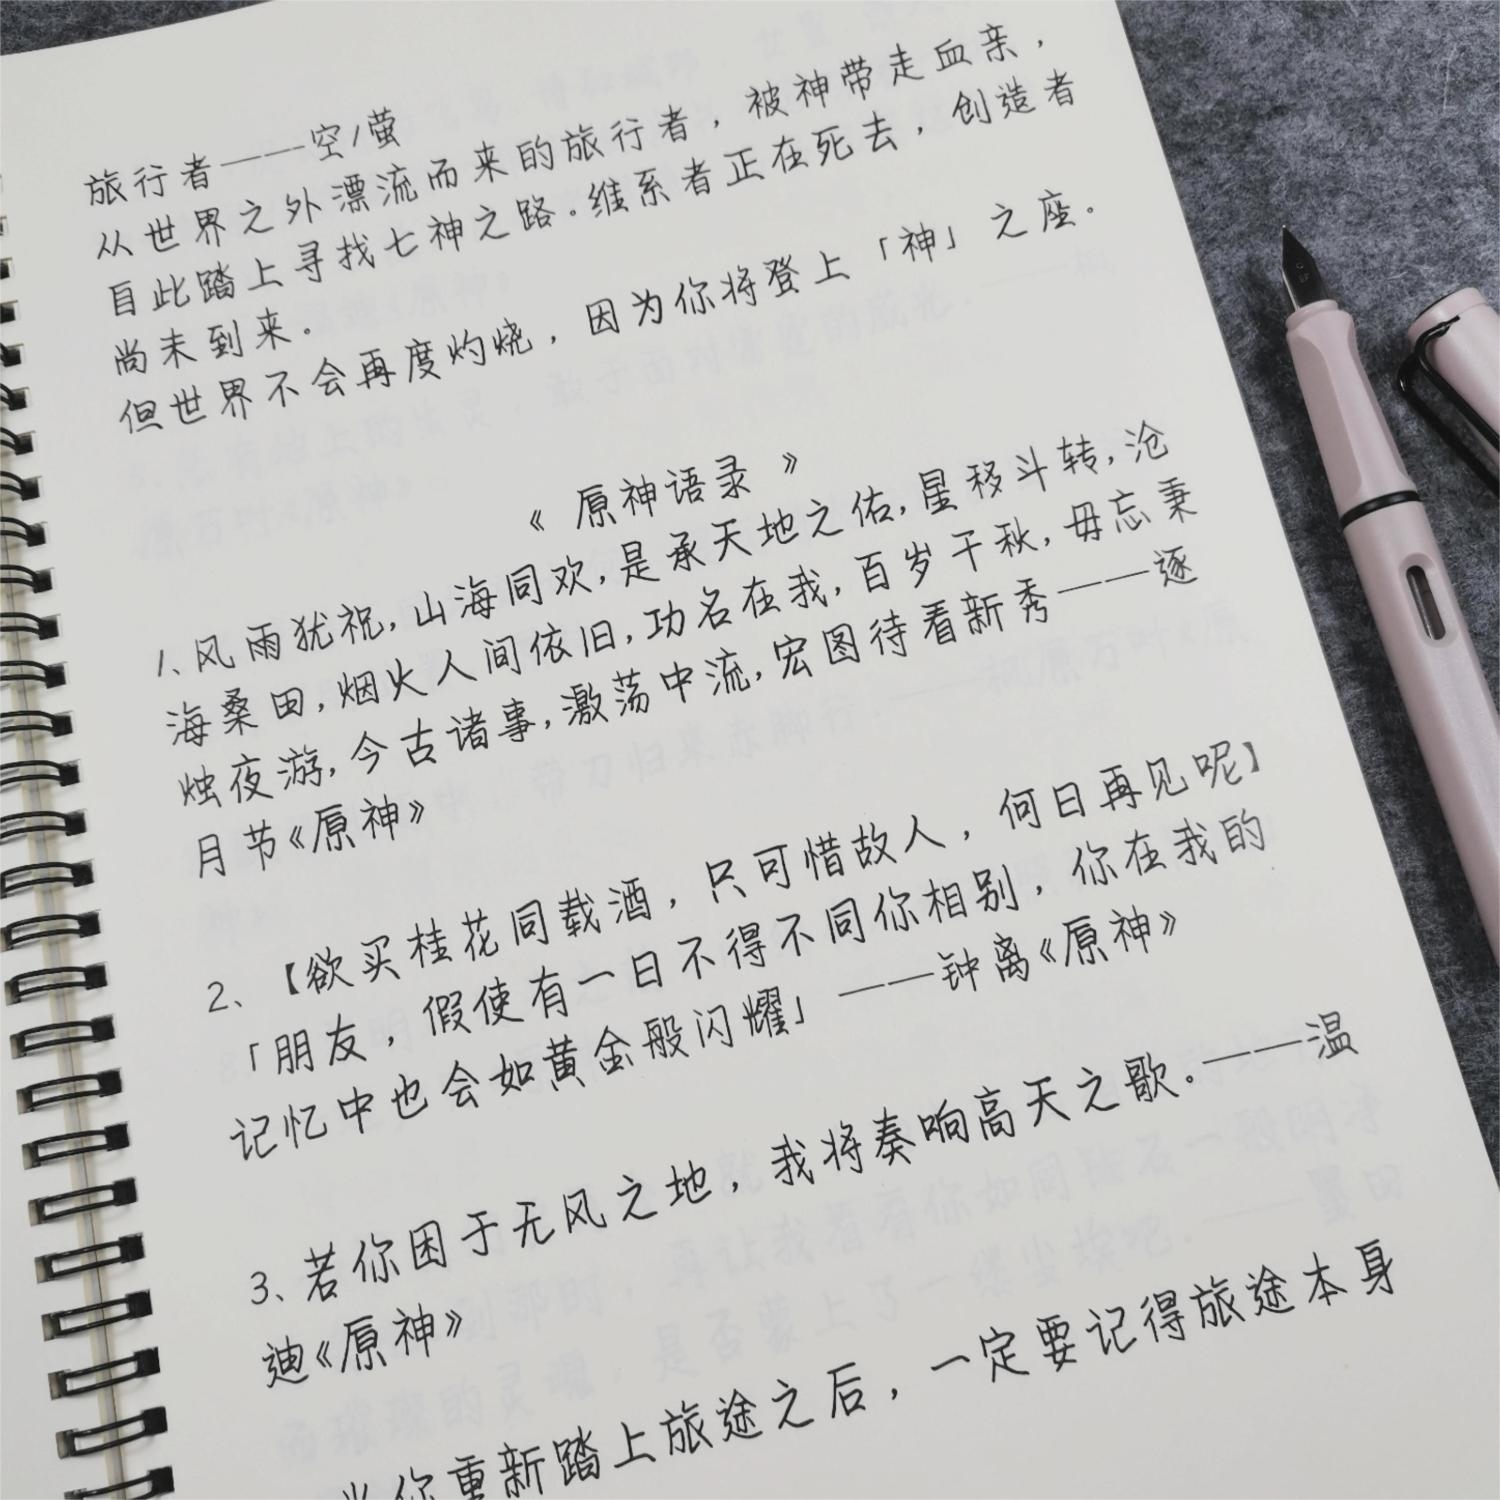 旅行者——空/萤
从世界之外漂流而来的旅行者，被神带走血亲，
自此踏上寻找七神之路.维系者正在死去，创造者
尚未到来.
但世界不会再度灼烧，因为你将登上「神」之座.
《 原神语录 》
1、风雨犹祝,山海同欢,是承天地之佑,星移斗转,沧
海桑田,烟火人间依旧,功名在我,百岁千秋,毋忘秉
烛夜游,今古诸事,激荡中流,宏图待看新秀——逐
月节《原神》
2、【欲买桂花同载酒，只可惜故人，何日再见呢】
「朋友，假使有一日不得不同你相别，你在我的
记忆中也会如黄金般闪耀」——钟离《原神》
3、若你困于无风之地，我将奏响高天之歌.——温
迪《原神》
当你重新踏上旅途之后，一定要记得旅途本身